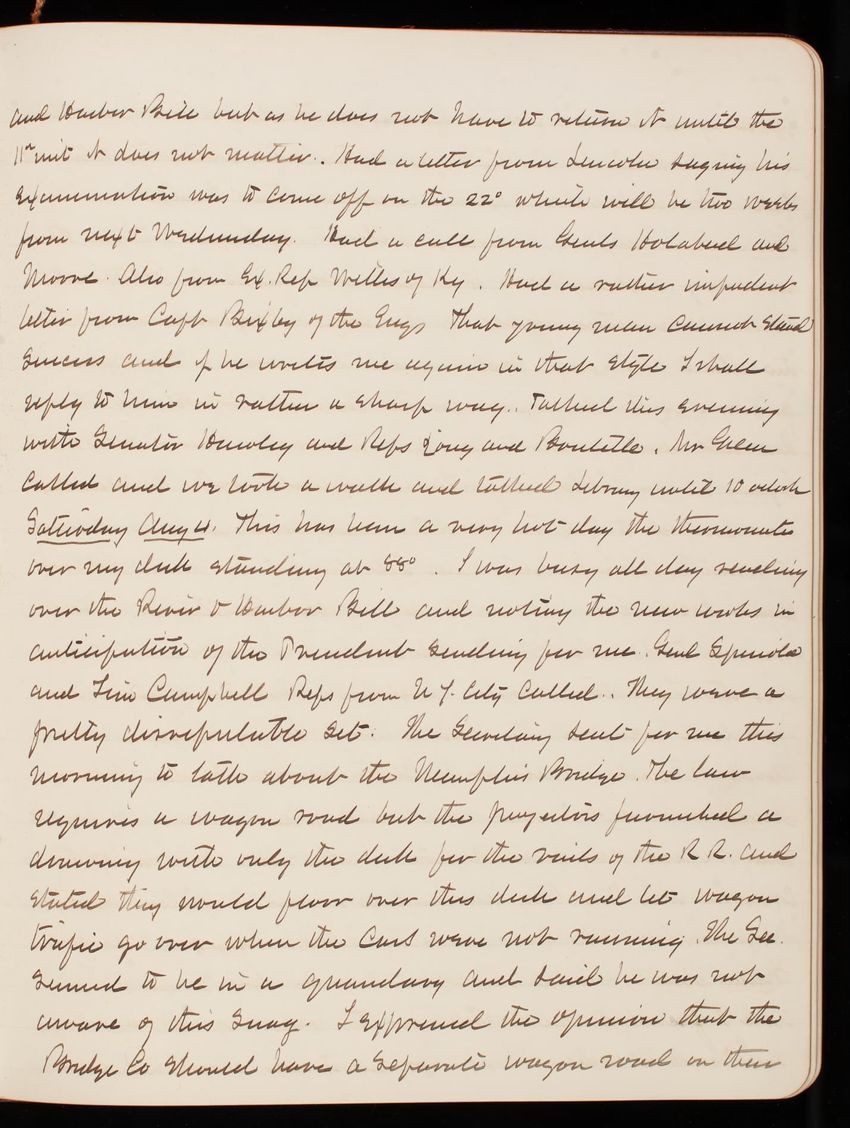 and Harbor Bill but as he does not have to return it until the
11th inst it does not matter. Had a letter from Lincoln saying his
examination was to come off on the 22d which will be two weeks
from next Wednesday. Had a call from Genls Holabird and
Moore. Also from Ex. Rep Willis of Ky. Had a rather impudent
letter from Capt Bixby of the Engs That young man cannot stand
success and if he writes me again in that style I shall
reply to him in rather a sharp way. Talked this evening
with Senator Hawley and Reps Long and Boutelle. Mr Green
called and we took a walk and talked Library until 10 oclock
Saturday Aug 4. This has been a very hot day the thermometer
over my desk standing at 88°. I was busy all day reading
over the River & Harbor Bill and noting the new works in
anticipation of the President sending for me. Genl Spinola
and Tim Campbell Reps from N.Y. City called. They were a
pretty disreputable set. The Secretary sent for me this
morning to talk about the Memphis Bridge. The law
requires a wagon road but the projectors furnished a
drawing with only the deck for the rails of the R R. and
stated they would floor over this deck and let wagon
trafic go over when the cars were not running. The Sec.
seemed to be in a quandary and said he was not
aware of this snag. I expressed the opinion that the
Bridge Co should have a separate wagon road on their